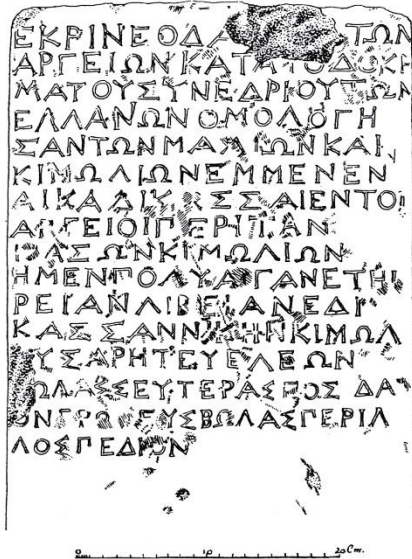 ΕΚΡΙΝΕΟΔΑ ΤΩΝ
ΑΡΓΕΙΩΝΚΑΤΑΤΟΔΟΚΗ
ΜΑΤΟΥΣΥΝΕΔΡΙΟΥΤΩΝ
ΕΛΛΑΝΩΝΟΜΟΛΟΓΗ
ΣΑΝΤΩΝΜΑΛΙΩΝΚΑΙ
ΚΙΜΩΛΙΩΝΕΜΜΕΝΕΝ
ΑΙΚΑΔΙΚΑΣΣΑΙΕΝΤΟΙ
ΑΡΓΕΙΟΙΠΕΡΙΤΑΝ
ΝΑΣΩΝΚΙΜΩΛΙΩΝ
ΗΜΕΝΠΟΛΥΑΙΓΑΝΕΤΗΙ
ΡΕΙΑΝΛΙΒΕΙΑΝΕΔΙ
ΚΑΣΣΑΝΝΙΚΗΝΚΙΜΩΛ
ΟΥΣΑΡΗΤΕΥΕΛΕΩΝ
ΩΛΑΣΣΕΥΤΕΡΑΣΠΟΣ ΔΑ
ΟΝΓΡΟΦΕΥΣΒΩΛΑΣΠΕΡΙΛ
ΛΟΣΠΕΔΙΟΝ
0 10 20 Cm.